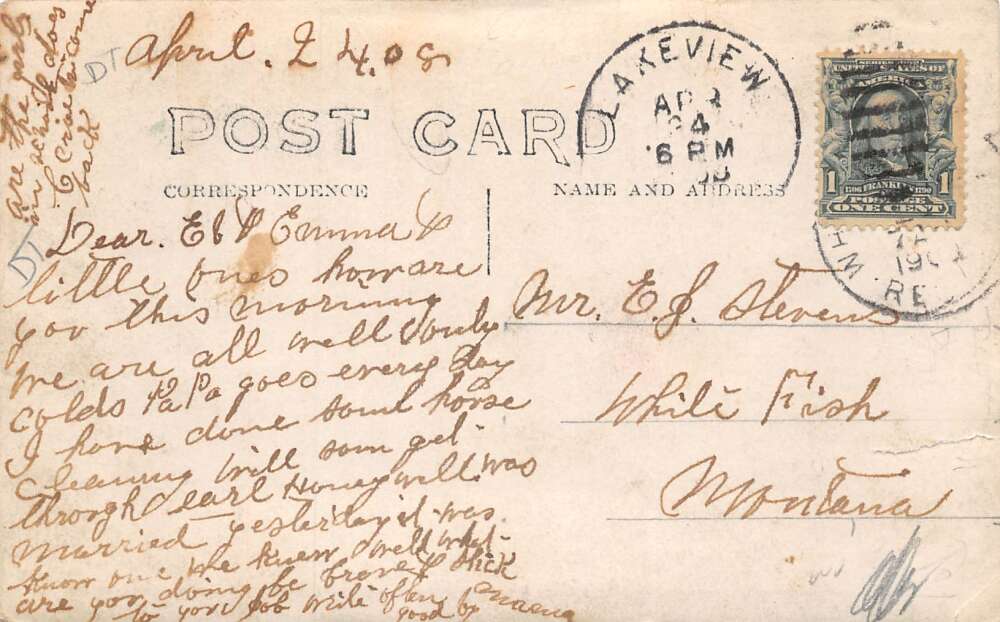 April. 24.08
POST CARD
CORRESPONDENCE
NAME AND ADDRESS
LAKEVIEW
APR
24
6 PM
SERIES 1902
UNITED STATES OF
AMERICA
1 FRANKLIN 1
POSTAGE
ONE CENT
Dear. Ed & Emma &
little ones how are
you this morning
we are all well only
colds Pa Pa goes every day
I have done som horse
cleaning will som get
through earl Honeywell was
married yesterday it was
know one we knew well what
are you doing be brave & stick
to your job write often
good by
Mr. E. J. Stevens
White Fish
Montana
are the girls
in school does
back
DT
DT